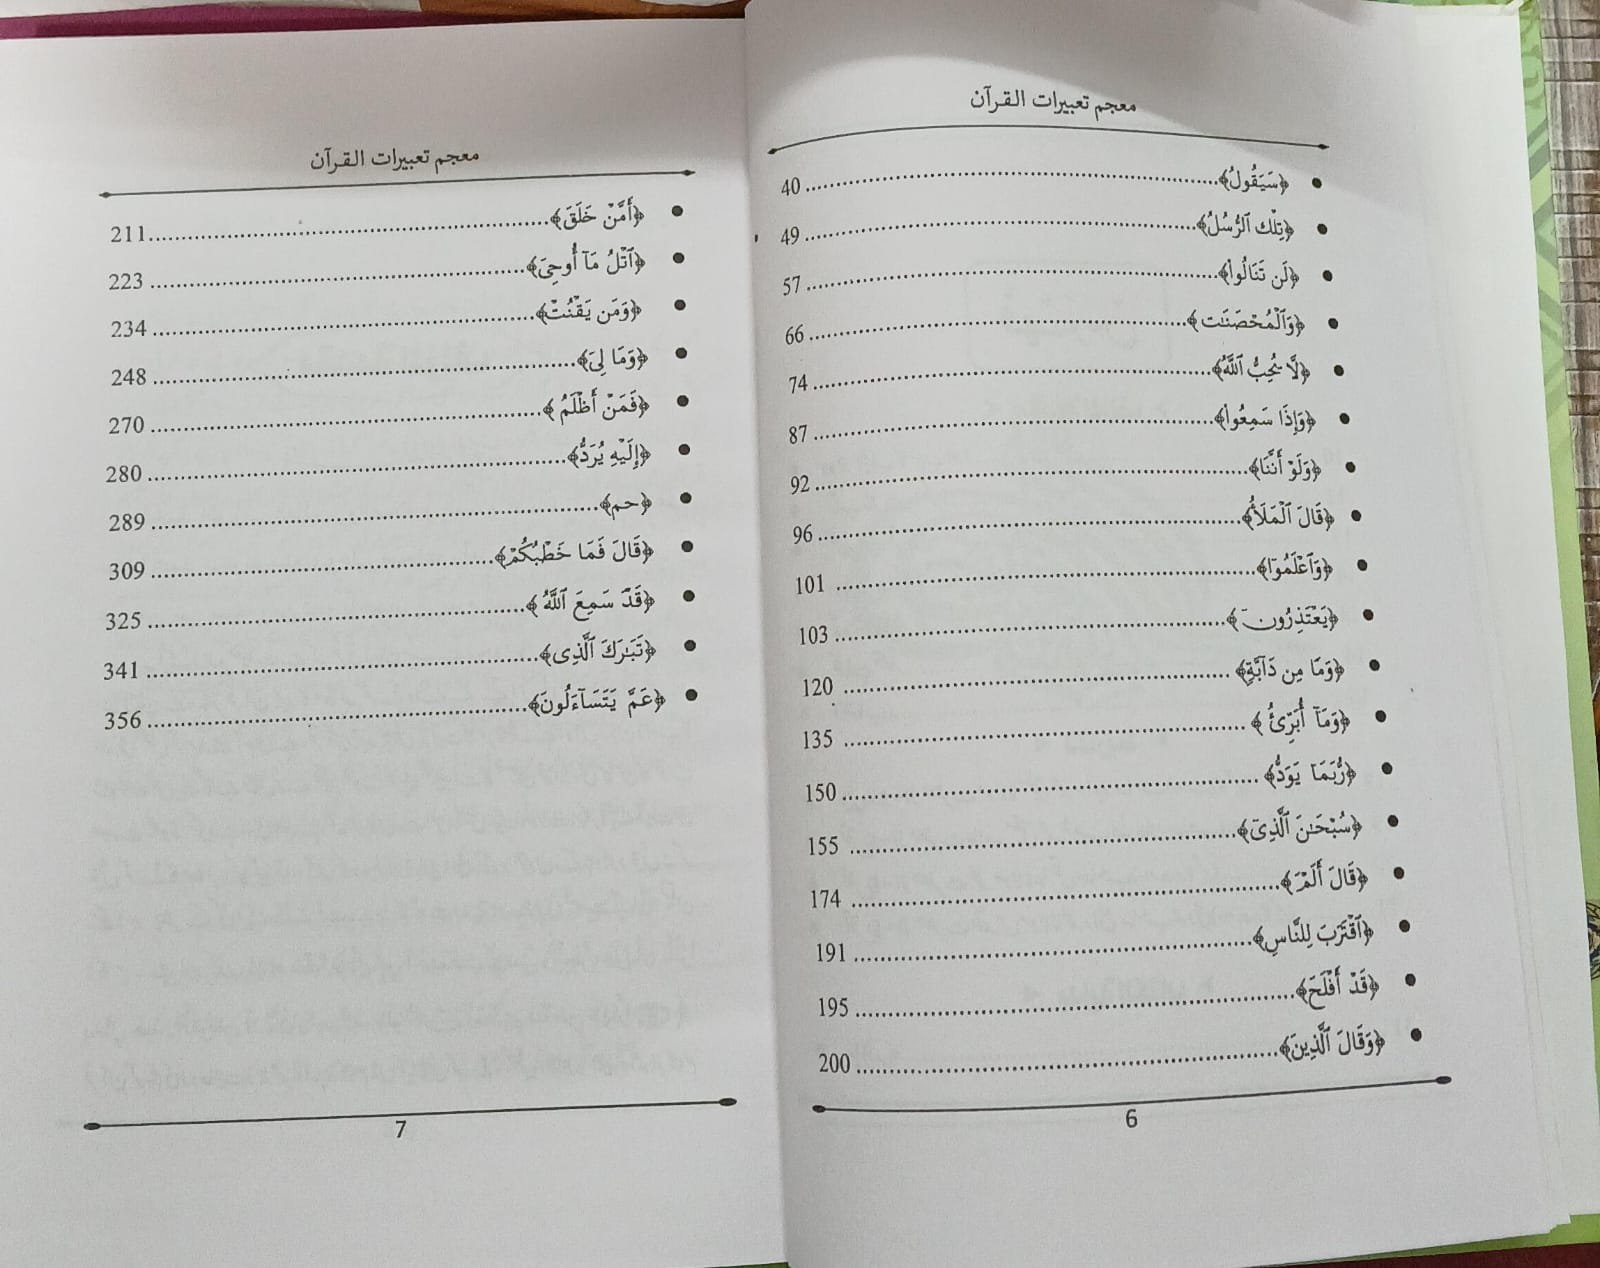 معجم تعبيرات القرآن
• ﴿سَيَقُولُ﴾ 40
• ﴿تِلْكَ ٱلرُّسُلُ﴾ 49
• ﴿لَن تَنَالُوا۟﴾ 57
• ﴿وَٱلْمُحْصَنَـٰتُ﴾ 66
• ﴿لَّا يُحِبُّ ٱللَّهُ﴾ 74
• ﴿وَإِذَا سَمِعُوا۟﴾ 87
• ﴿وَلَوْ أَنَّنَا﴾ 92
• ﴿قَالَ ٱلْمَلَأُ﴾ 96
• ﴿وَٱعْلَمُوٓا۟﴾ 101
• ﴿يَعْتَذِرُونَ﴾ 103
• ﴿وَمَا مِن دَآبَّةٍ﴾ 120
• ﴿وَمَآ أُبَرِّئُ﴾ 135
• ﴿رُّبَمَا يَوَدُّ﴾ 150
• ﴿سُبْحَـٰنَ ٱلَّذِىٓ﴾ 155
• ﴿قَالَ أَلَمْ﴾ 174
• ﴿ٱقْتَرَبَ لِلنَّاسِ﴾ 191
• ﴿قَدْ أَفْلَحَ﴾ 195
• ﴿وَقَالَ ٱلَّذِينَ﴾ 200
6
معجم تعبيرات القرآن
• ﴿أَمَّنْ خَلَقَ﴾ 211
• ﴿ٱتْلُ مَآ أُوحِىَ﴾ 223
• ﴿وَمَن يَقْنُتْ﴾ 234
• ﴿وَمَا لِىَ﴾ 248
• ﴿فَمَنْ أَظْلَمُ﴾ 270
• ﴿إِلَيْهِ يُرَدُّ﴾ 280
• ﴿حم﴾ 289
• ﴿قَالَ فَمَا خَطْبُكُمْ﴾ 309
• ﴿قَدْ سَمِعَ ٱللَّهُ﴾ 325
• ﴿تَبَـٰرَكَ ٱلَّذِى﴾ 341
• ﴿عَمَّ يَتَسَآءَلُونَ﴾ 356
7